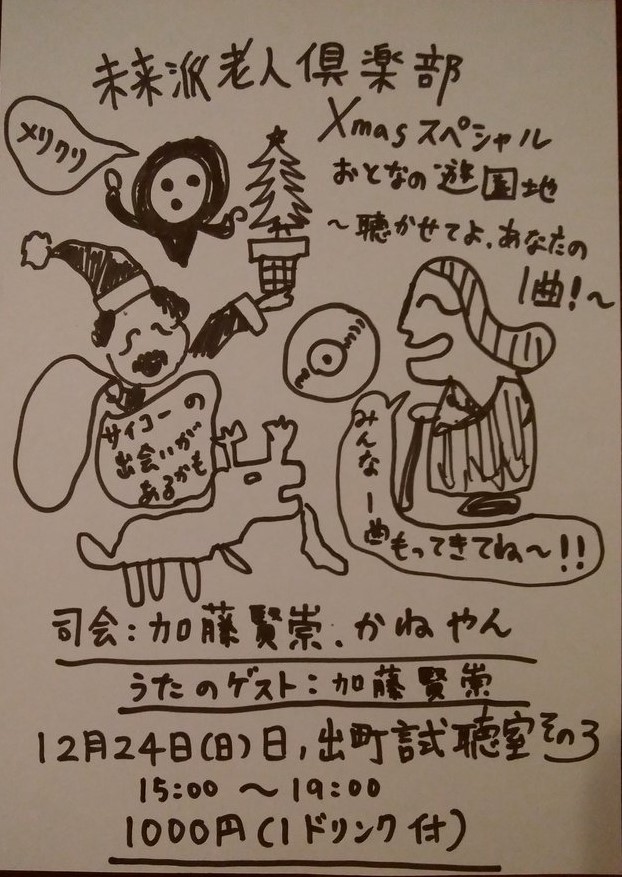 未来派老人倶楽部
Xmasスペシャル
おとなの遊園地
～聴かせてよ、あなたの
1曲！～
メリクリ
サイコーの
出会いが
あるかも
みんな1曲もってきてね～!!
司会：加藤賢崇、かねやん
うたのゲスト：加藤賢崇
12月24日(日)日ノ出町試聴室その3
15:00～19:00
1000円(1ドリンク付)